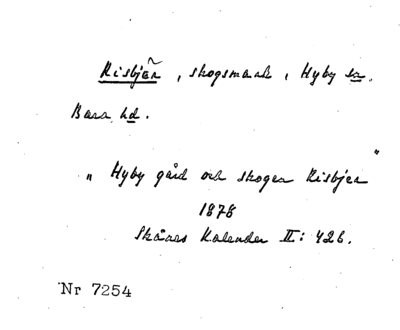 Risbjär, skogsmark, Hyby sn.
Bara hd.
"Hyby gård och skogen Risbjer"
1878
Skånes Kalender II: 426.
Nr 7254